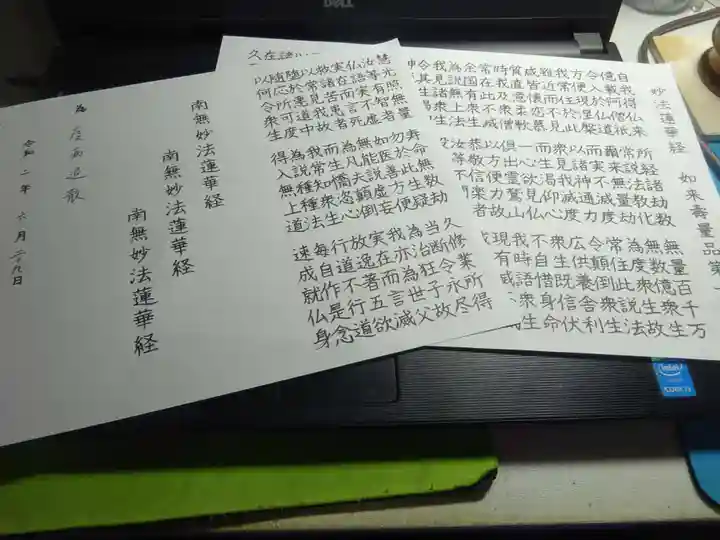 妙法蓮華経 如来寿量品第
自我得仏来 所経諸劫数 無量百千万
億載阿僧祇 常説法教化 無数億衆生
令入於仏道 爾来無量劫 為度衆生故
方便現涅槃 而実不滅度 常住此説法
我常住於此 以諸神通力 令顛倒衆生
雖近而不見 衆見我滅度 広供養舎利
咸皆懐恋慕 而生渇仰心 衆生既信伏
質直意柔軟 一心欲見仏 不自惜身命
時我及衆僧 倶出霊鷲山 我時語衆生
常在此不滅 以方便力故 現有滅不滅
余国有衆生 恭敬信楽者
為説無上法 汝等不聞此
我見諸衆生
慧光照無量 寿命無数劫 久修業所得
汝等有智者 勿於此生疑 当断令永尽
仏語実不虚 如医善方便 為治狂子故
実在而言死 無能説虚妄 我亦為世父
救諸苦患者 為凡夫顛倒 実在而言滅
以常見我故 而生憍恣心 放逸著五欲
堕於悪道中 我常知衆生 行道不行道
随所応可度 為説種種法 毎自作是念
以何令衆生 得入無上道 速成就仏身
南無妙法蓮華経
南無妙法蓮華経
南無妙法蓮華経
為 疫病退散
令和二年 六月二十九日
DELL
intel
CORE i3